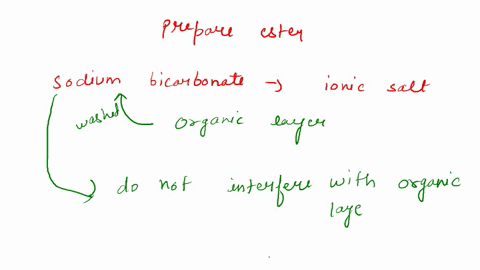 prepare ester
sodium bicarbonate → ionic salt
washed organic layer
do not interfere with organic
laye